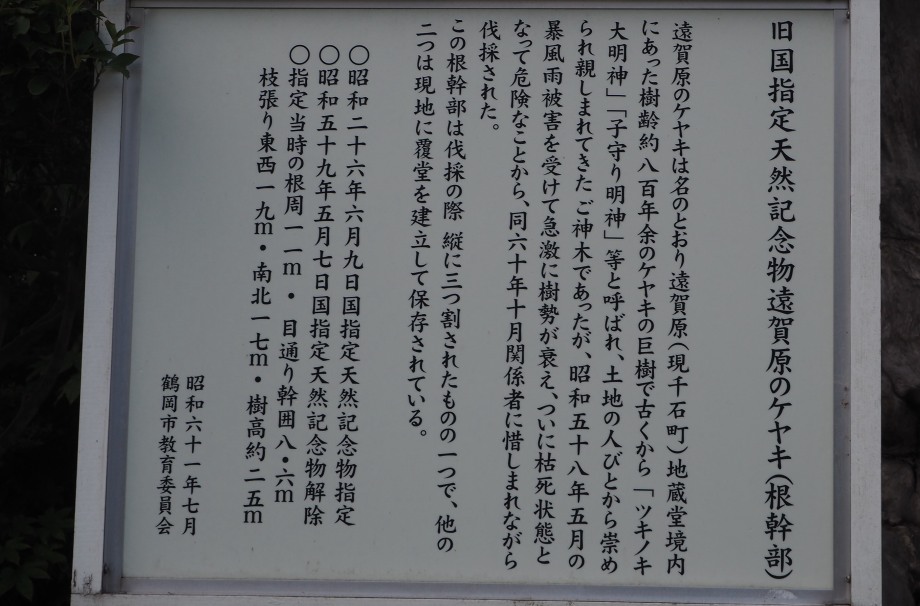 旧国指定天然記念物遠賀原のケヤキ(根幹部)
遠賀原のケヤキは名のとおり遠賀原(現千石町)地蔵堂境内
にあった樹齢約八百年余のケヤキの巨樹で古くから「ツキノキ
大明神」「子守り明神」等と呼ばれ、土地の人びとから崇め
られ親しまれてきたご神木であったが、昭和五十八年五月の
暴風雨被害を受けて急激に樹勢が衰え、ついに枯死状態と
なって危険なことから、同六十年十月関係者に惜しまれながら
伐採された。
この根幹部は伐採の際 縦に三つ割されたものの一つで、他の
二つは現地に覆堂を建立して保存されている。
〇昭和二十六年六月九日国指定天然記念物指定
〇昭和五十九年五月七日国指定天然記念物解除
〇指定当時の根周一一m・目通り幹囲八・六m
枝張り東西一九m・南北一七m・樹高約二五m
昭和六十一年七月
鶴岡市教育委員会